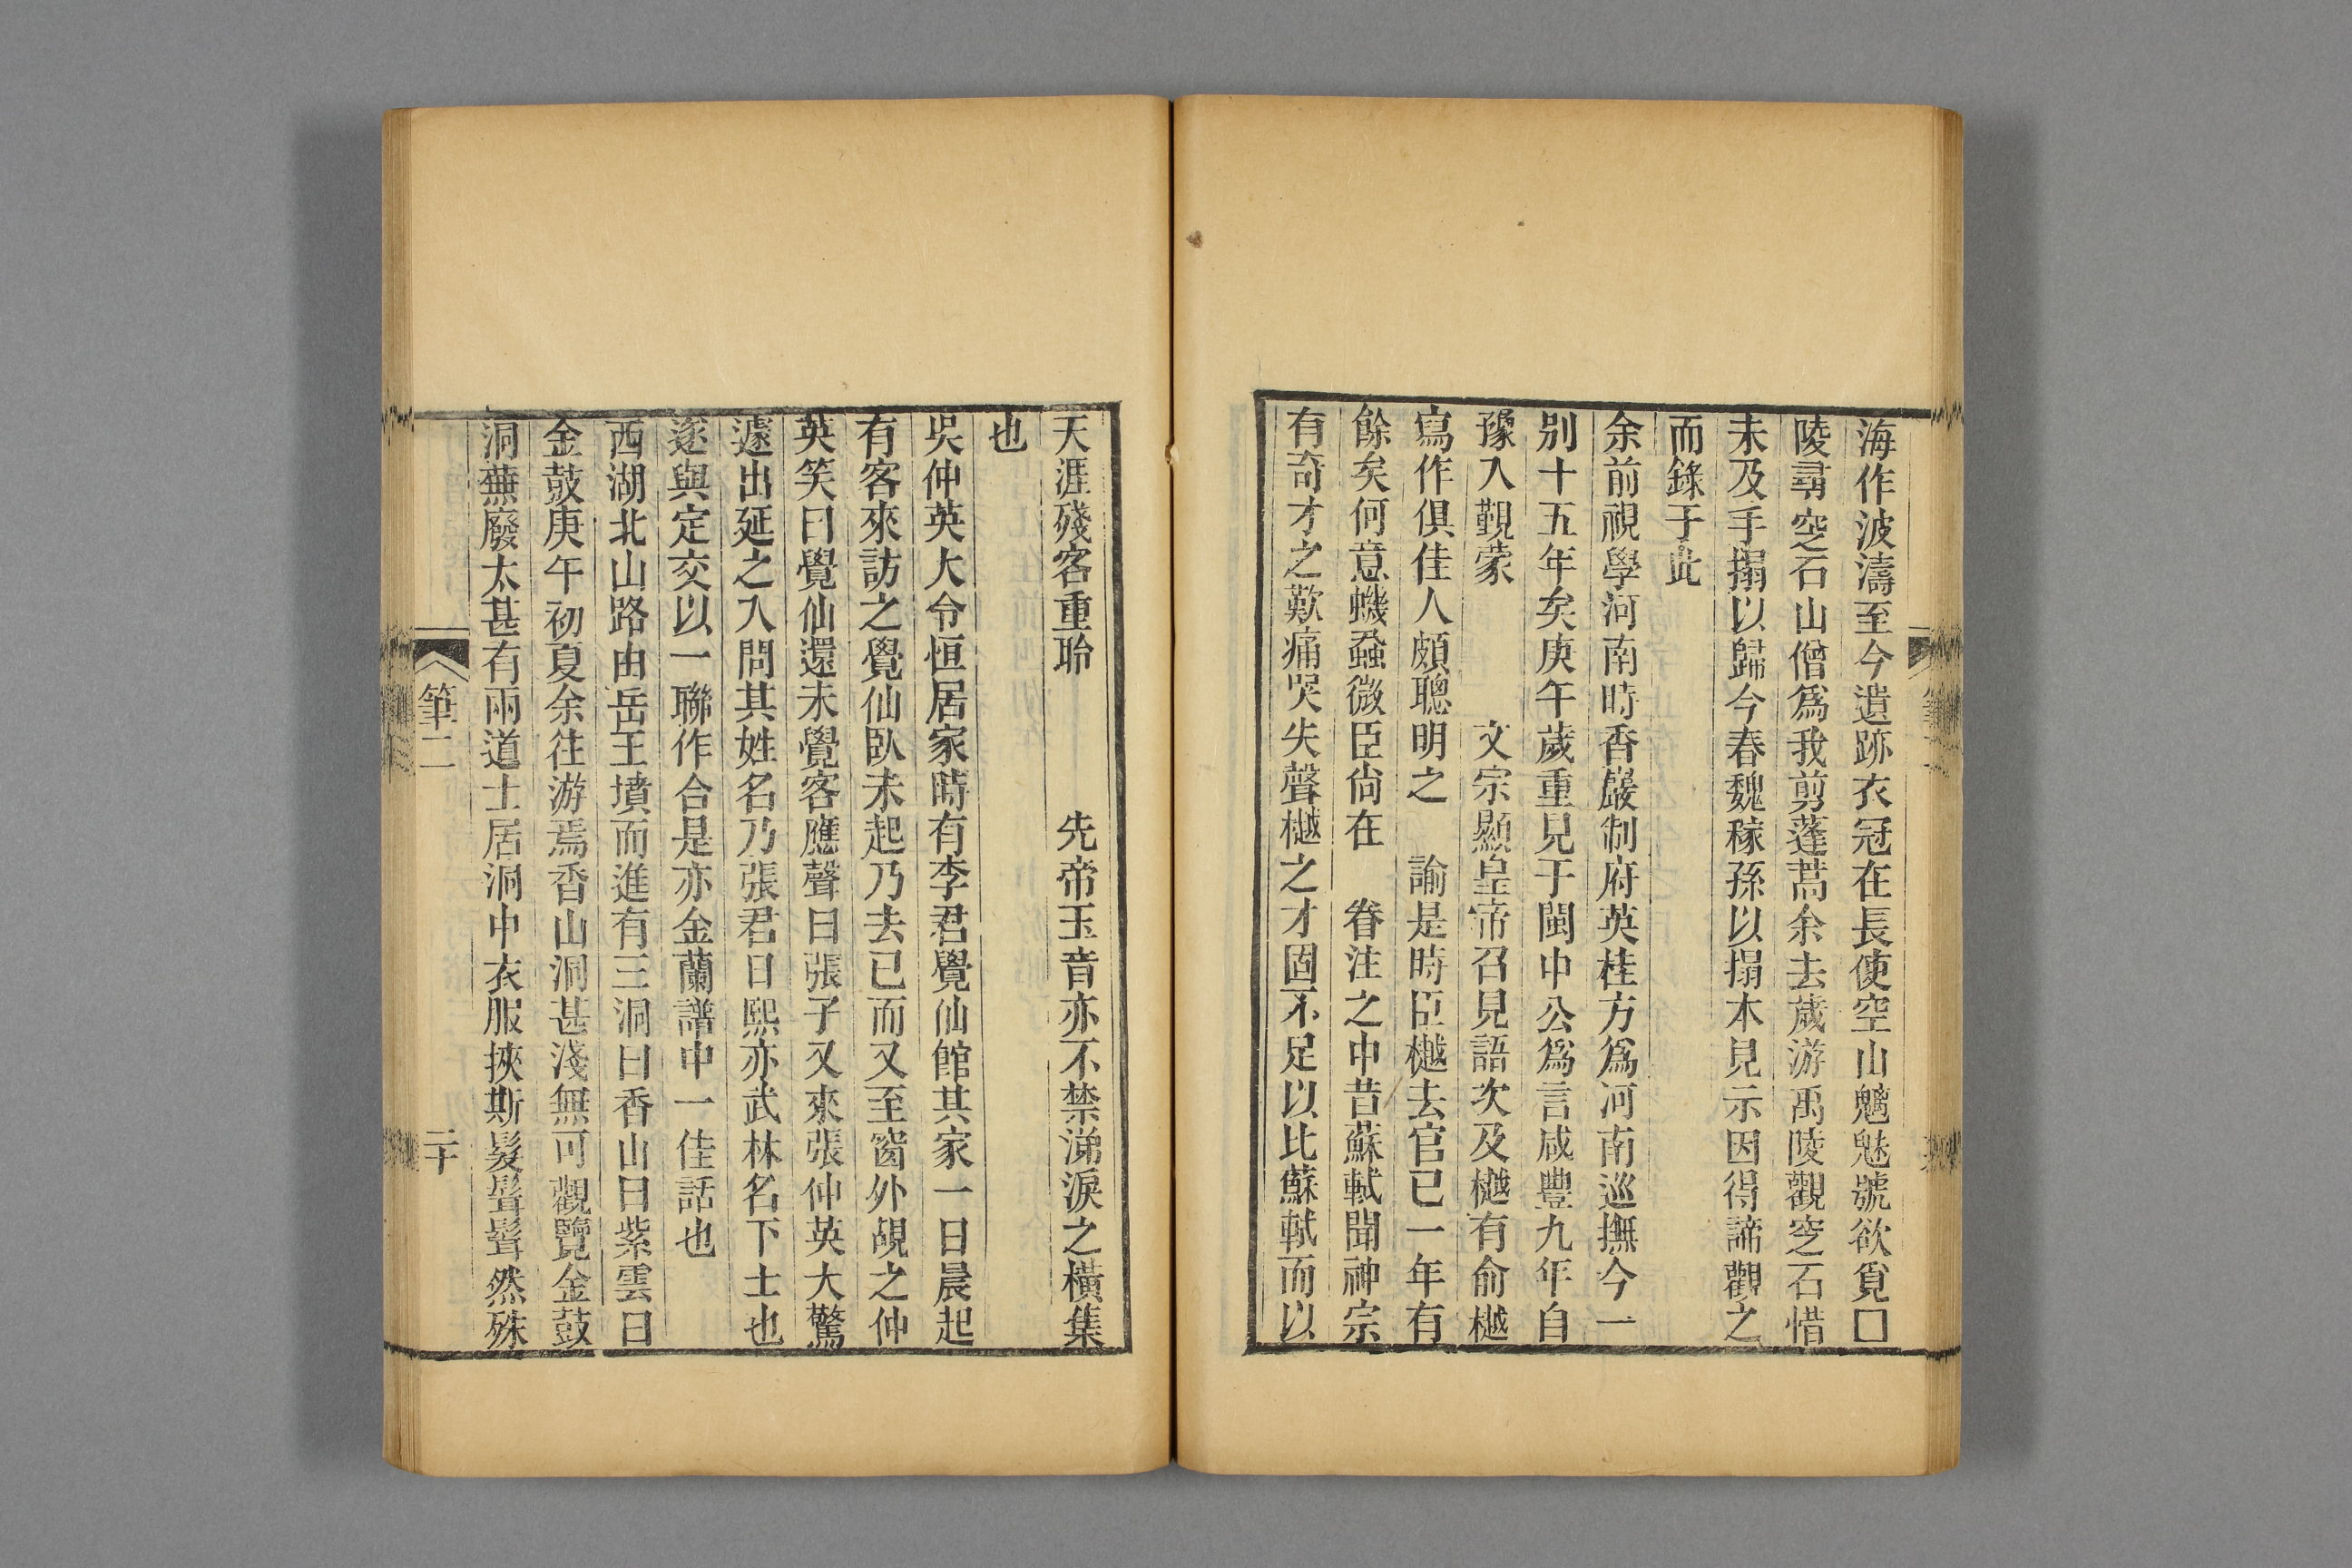 海作波濤至今遺跡衣冠在長使空山魑魅號欲覓□
陵尋窆石山僧爲我剪蓬蒿余去歲游禹陵觀窆石惜
未及手搨以歸今春魏稼孫以搨本見示因得諦觀之
而錄于此
余前視學河南時香巖制府英桂方爲河南巡撫今一
別十五年矣庚午歲重見于閩中公爲言咸豐九年自
豫入覲蒙　　　文宗顯皇帝召見語次及樾有俞樾
寫作俱佳人頗聰明之　諭是時臣樾去官已一年有
餘矣何意蟣蝨微臣尙在　眷注之中昔蘇軾聞神宗
有奇才之歎痛哭失聲樾之才固不足以比蘇軾而以
天涯殘客重聆　　　先帝玉音亦不禁涕淚之橫集
也
吳仲英大令恒居家時有李君覺仙館其家一日晨起
有客來訪之覺仙臥未起乃去已而又至窗外覘之仲
英笑曰覺仙還未覺客應聲曰張子又來張仲英大驚
遽出延之入問其姓名乃張君日熙亦武林名下士也
遂與定交以一聯作合是亦金蘭譜中一佳話也
西湖北山路由岳王墳而進有三洞曰香山曰紫雲曰
金鼓庚午初夏余往游焉香山洞甚淺無可觀覽金鼓
洞蕪廢太甚有兩道士居洞中衣服挾斯髮鬅鬙然殊
筆二
二十